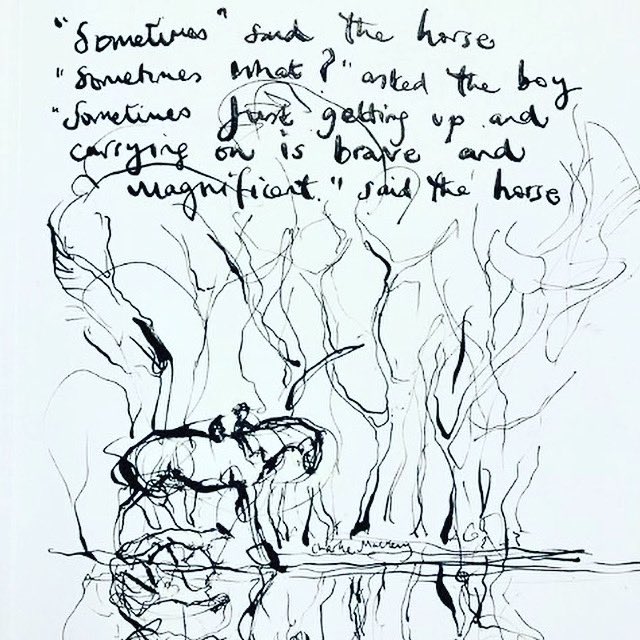 "Sometimes" said the horse
"Sometimes what?" asked the boy
"Sometimes just getting up and
carrying on is brave and
magnificent." said the horse
Charlie Mackesy